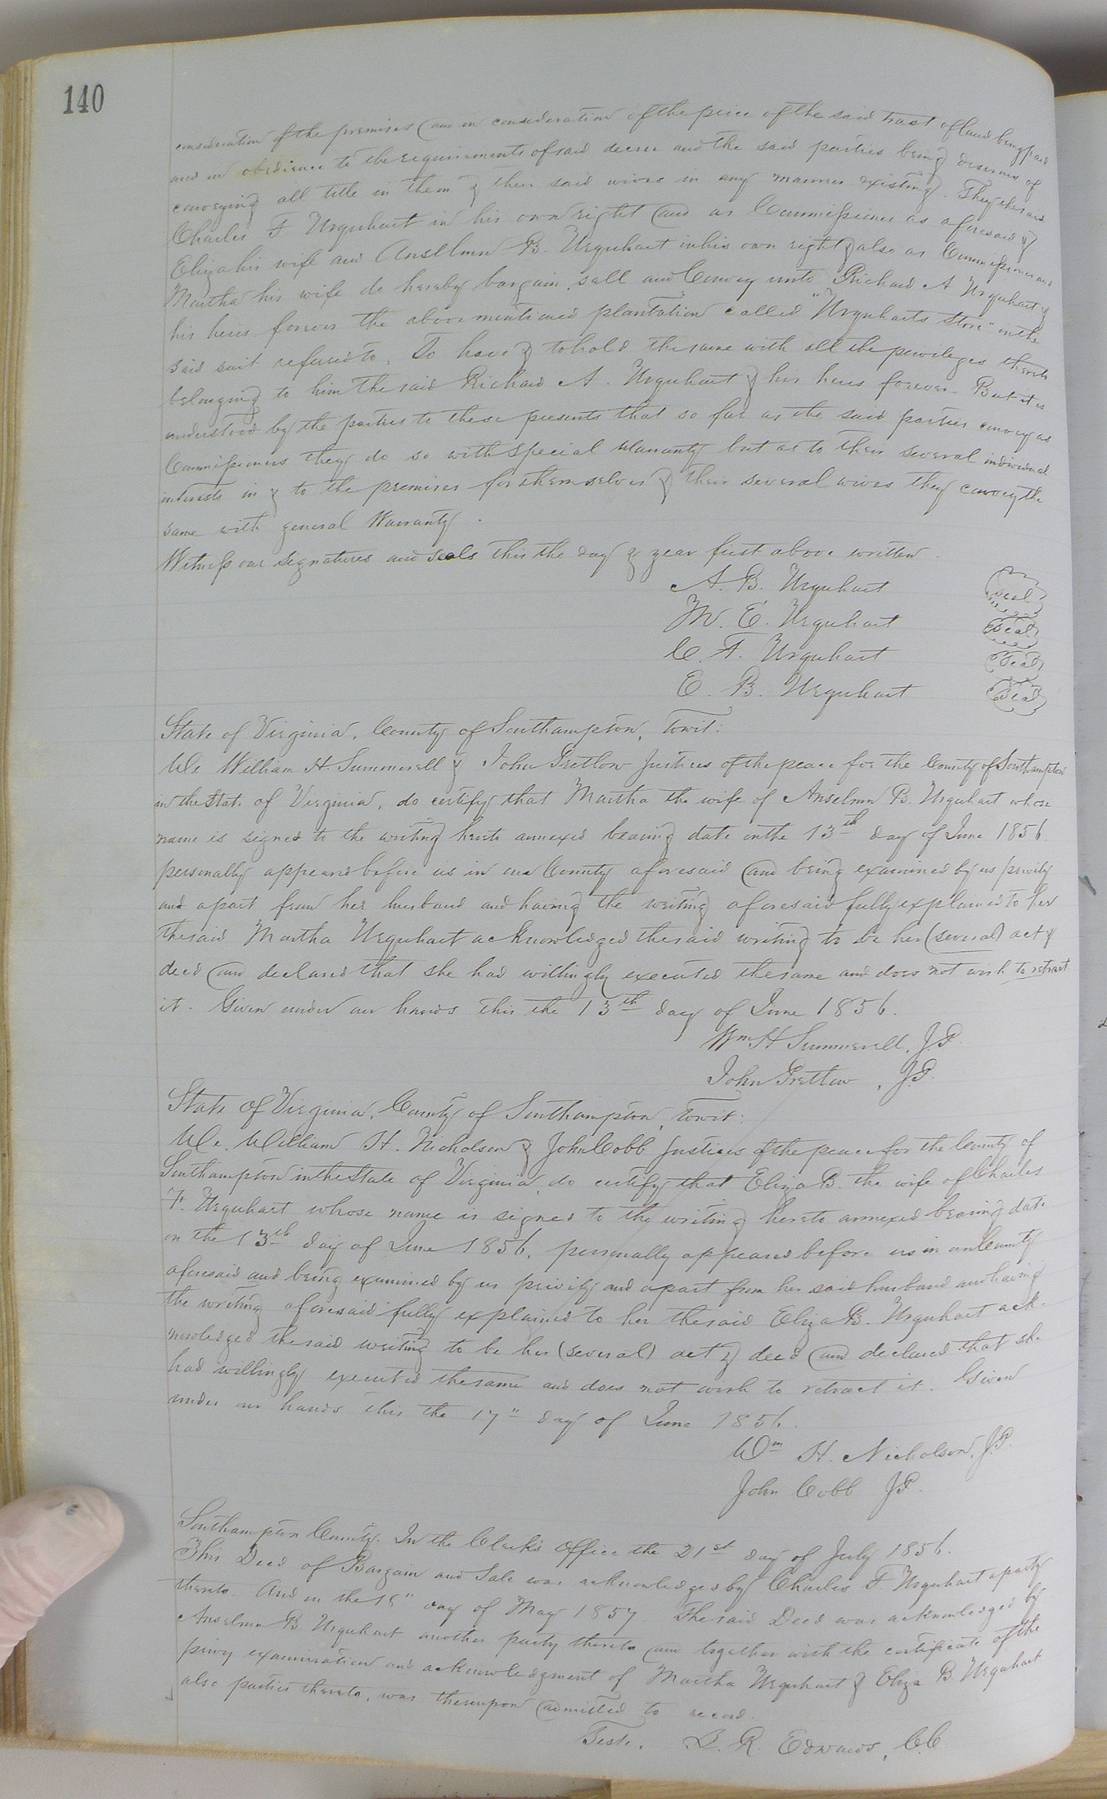 140
consideration of the premises and in consideration of the price of the said tract of land being paid
and in obedience to the requirements of said decree and the said parties being desirous of
conveying all title in them & their said wives in any manner existing. They the said
Charles F Urquhart in his own right and as Commissioner as aforesaid &
Eliza his wife and Anselmn B. Urquhart in his own right & also as Commissioner and
Martha his wife do hereby bargain sell and Convey unto Richard A Urquhart &
his heirs forever the above mentioned plantation called "Urquharts Store" in the
said suit referred to. To have & to hold the same with all the privileges thereto
belonging to him the said Richard A. Urquhart & his heirs forever. But it is
understood by the parties to these presents that so far as the said parties convey as
Commissioners they do so with Special Warranty but as to their several individual
interests in & to the premises for themselves & their several wives they convey the
same with general Warranty.
Witness our signatures and seals this the day & year first above written.
A. B. Urquhart Seal
M. E. Urquhart Seal
C. F. Urquhart Seal
E. B. Urquhart Seal
State of Virginia, County of Southampton, Towit:
We William H. Summerell & John Pretlow Justices of the peace for the County of Southampton
in the State of Virginia, do certify that Martha the wife of Anselmn B. Urquhart whose
name is signed to the writing hereto annexed bearing date on the 13th day of June 1856
personally appeared before us in our County aforesaid and being examined by us privily
and apart from her husband and having the writing aforesaid fully explained to her
the said Martha Urquhart acknowledged the said writing to be her (several) act &
deed and declared that she had willingly executed the same and does not wish to retract
it. Given under our hands this the 13th day of June 1856.
Wm H Summerell, JP
John Pretlow, JP.
State of Virginia, County of Southampton, towit:
We. William H. Nicholson & John Cobb Justices of the peace for the County of
Southampton in the State of Virginia, do certify that Eliza B. the wife of Charles
F. Urquhart whose name is signed to the writing hereto annexed bearing date
on the 13th day of June 1856, personally appeared before us in our County
aforesaid and being examined by us privily and apart from her said husband and having
the writing aforesaid fully explained to her the said Eliza B. Urquhart ack-
nowledged the said writing to be her (several) act & deed and declared that she
had willingly executed the same and does not wish to retract it. Given
under our hands this the 17" day of June 1856.
Wm H. Nicholson, J.P.
John Cobb JP.
Southampton County. In the Clerk's Office the 21st day of July 1856.
This Deed of Bargain and Sale was acknowledged by Charles F Urquhart a party
thereto. And on the 18" day of May 1857 The said Deed was acknowledged by
Anselmn B Urquhart another party thereto and together with the certificate of the
privy examination and acknowledgment of Martha Urquhart & Eliza B Urquhart
also parties thereto, was thereupon admitted to record.
Test. L. R. Edwards, C.C